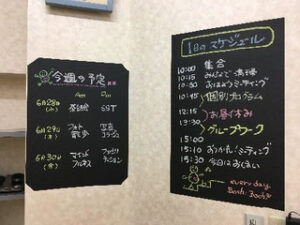 今週の予定
AM PM
6月28日 茶話会 SST
(火)
6月29日 フォト 写真
(水) 散歩 コラージュ
6月30日 マインド ファシリ
(木) フルネス テーション
1日のスケジュール
10:00 集合
10:15 みんなで清掃
10:30 おはようミーティング
10:45 個別プログラム
12:15 お昼休み
13:15 グループワーク
15:00
15:15 おつかれ!ミーティング
15:30 今日はおしまい
every day